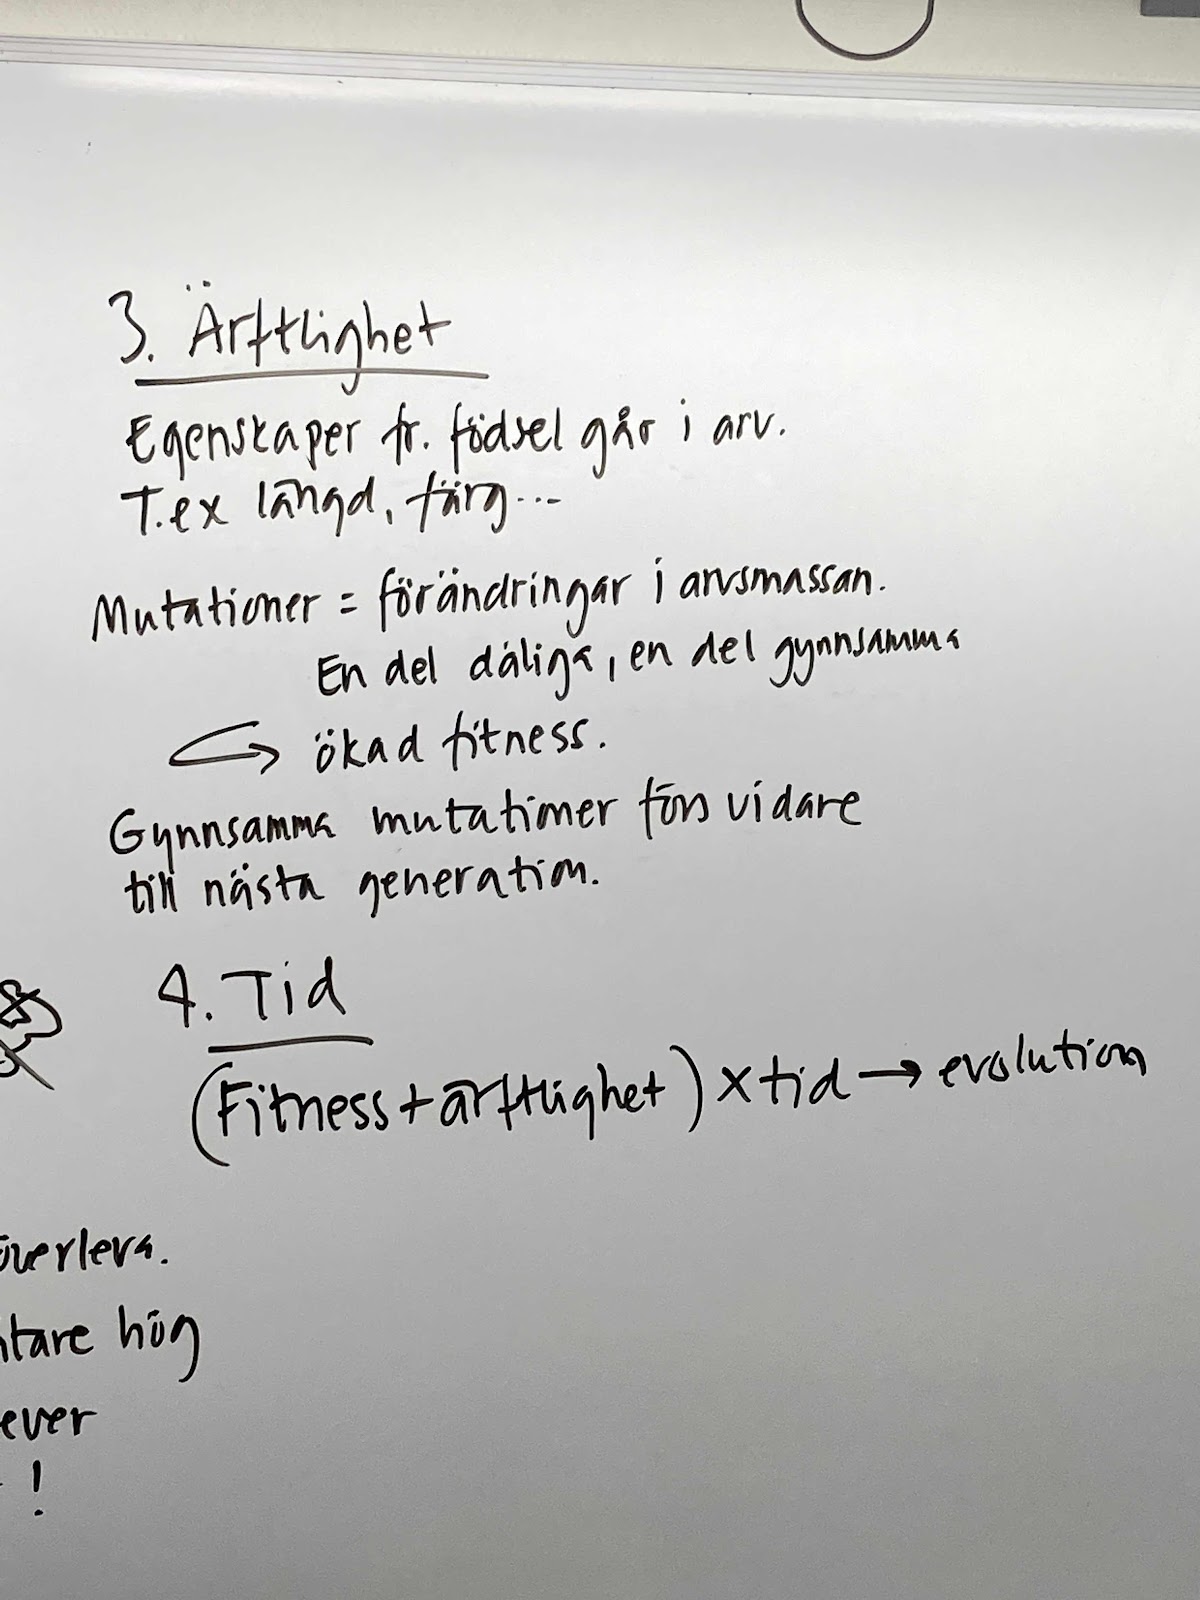 3. Ärftlighet
Egenskaper fr. födsel går i arv.
T.ex längd, färg...
Mutationer = förändringar i arvsmassan.
En del dåliga, en del gynnsamma
→ ökad fitness.
Gynnsamma mutationer förs vidare
till nästa generation.
4. Tid
(Fitness + ärftlighet) x tid → evolution
överleva.
ntare hög
ever
!